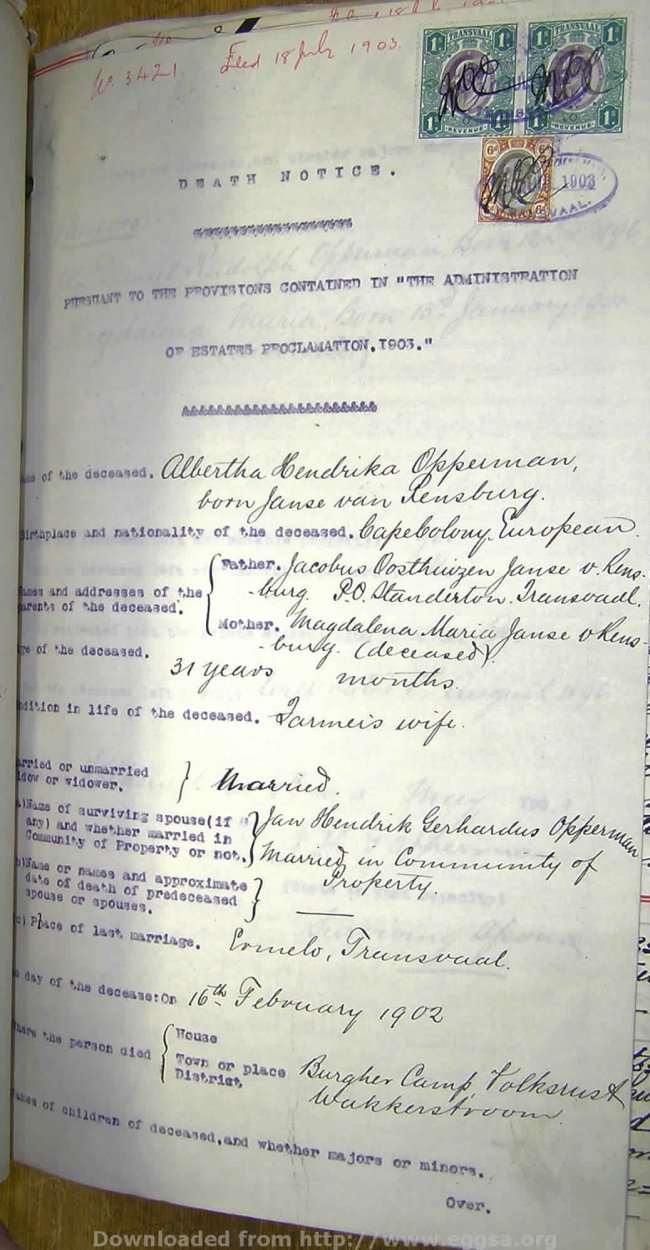 No. 3421. Filed 18 July 1903.
TRANSVAAL
TRANSVAAL
1/- 1/-
1/- 1/-
REVENUE
REVENUE
6d 6d
1903
TRANSVAAL.
DEATH NOTICE.
PURSUANT TO THE PROVISIONS CONTAINED IN "THE ADMINISTRATION
OF ESTATES PROCLAMATION, 1903."
&&&&&&&&&&&&&&&&&&&&&&
of the deceased. Albertha Hendrika Opperman,
born Janse van Rensburg.
Birthplace and nationality of the deceased. Cape Colony. European.
Names and addresses of the parents of the deceased.
Father. Jacobus Oosthuizen Janse v. Rens-
burg. P.O. Standerton. Transvaal.
Mother. Magdalena Maria Janse v Rens-
burg. (deceased).
of the deceased.
31 years months.
Condition in life of the deceased. Farmer's wife.
Married or unmarried
widow or widower. Married.
a) Name of surviving spouse (if
any) and whether married in
Community of Property or not.
Jan Hendrik Gerhardus Opperman
Married in Community of
Property.
b) Name or names and approximate
date of death of predeceased
spouse or spouses. —
c) Place of last marriage. Ermelo, Transvaal.
day of the decease: On 16th February 1902
Where the person died
House
Town or place
District
Burgher Camp, Volksrust
Wakkerstroom.
Names of children of deceased, and whether majors or minors.
Over.
Downloaded from http://www.eggsa.org